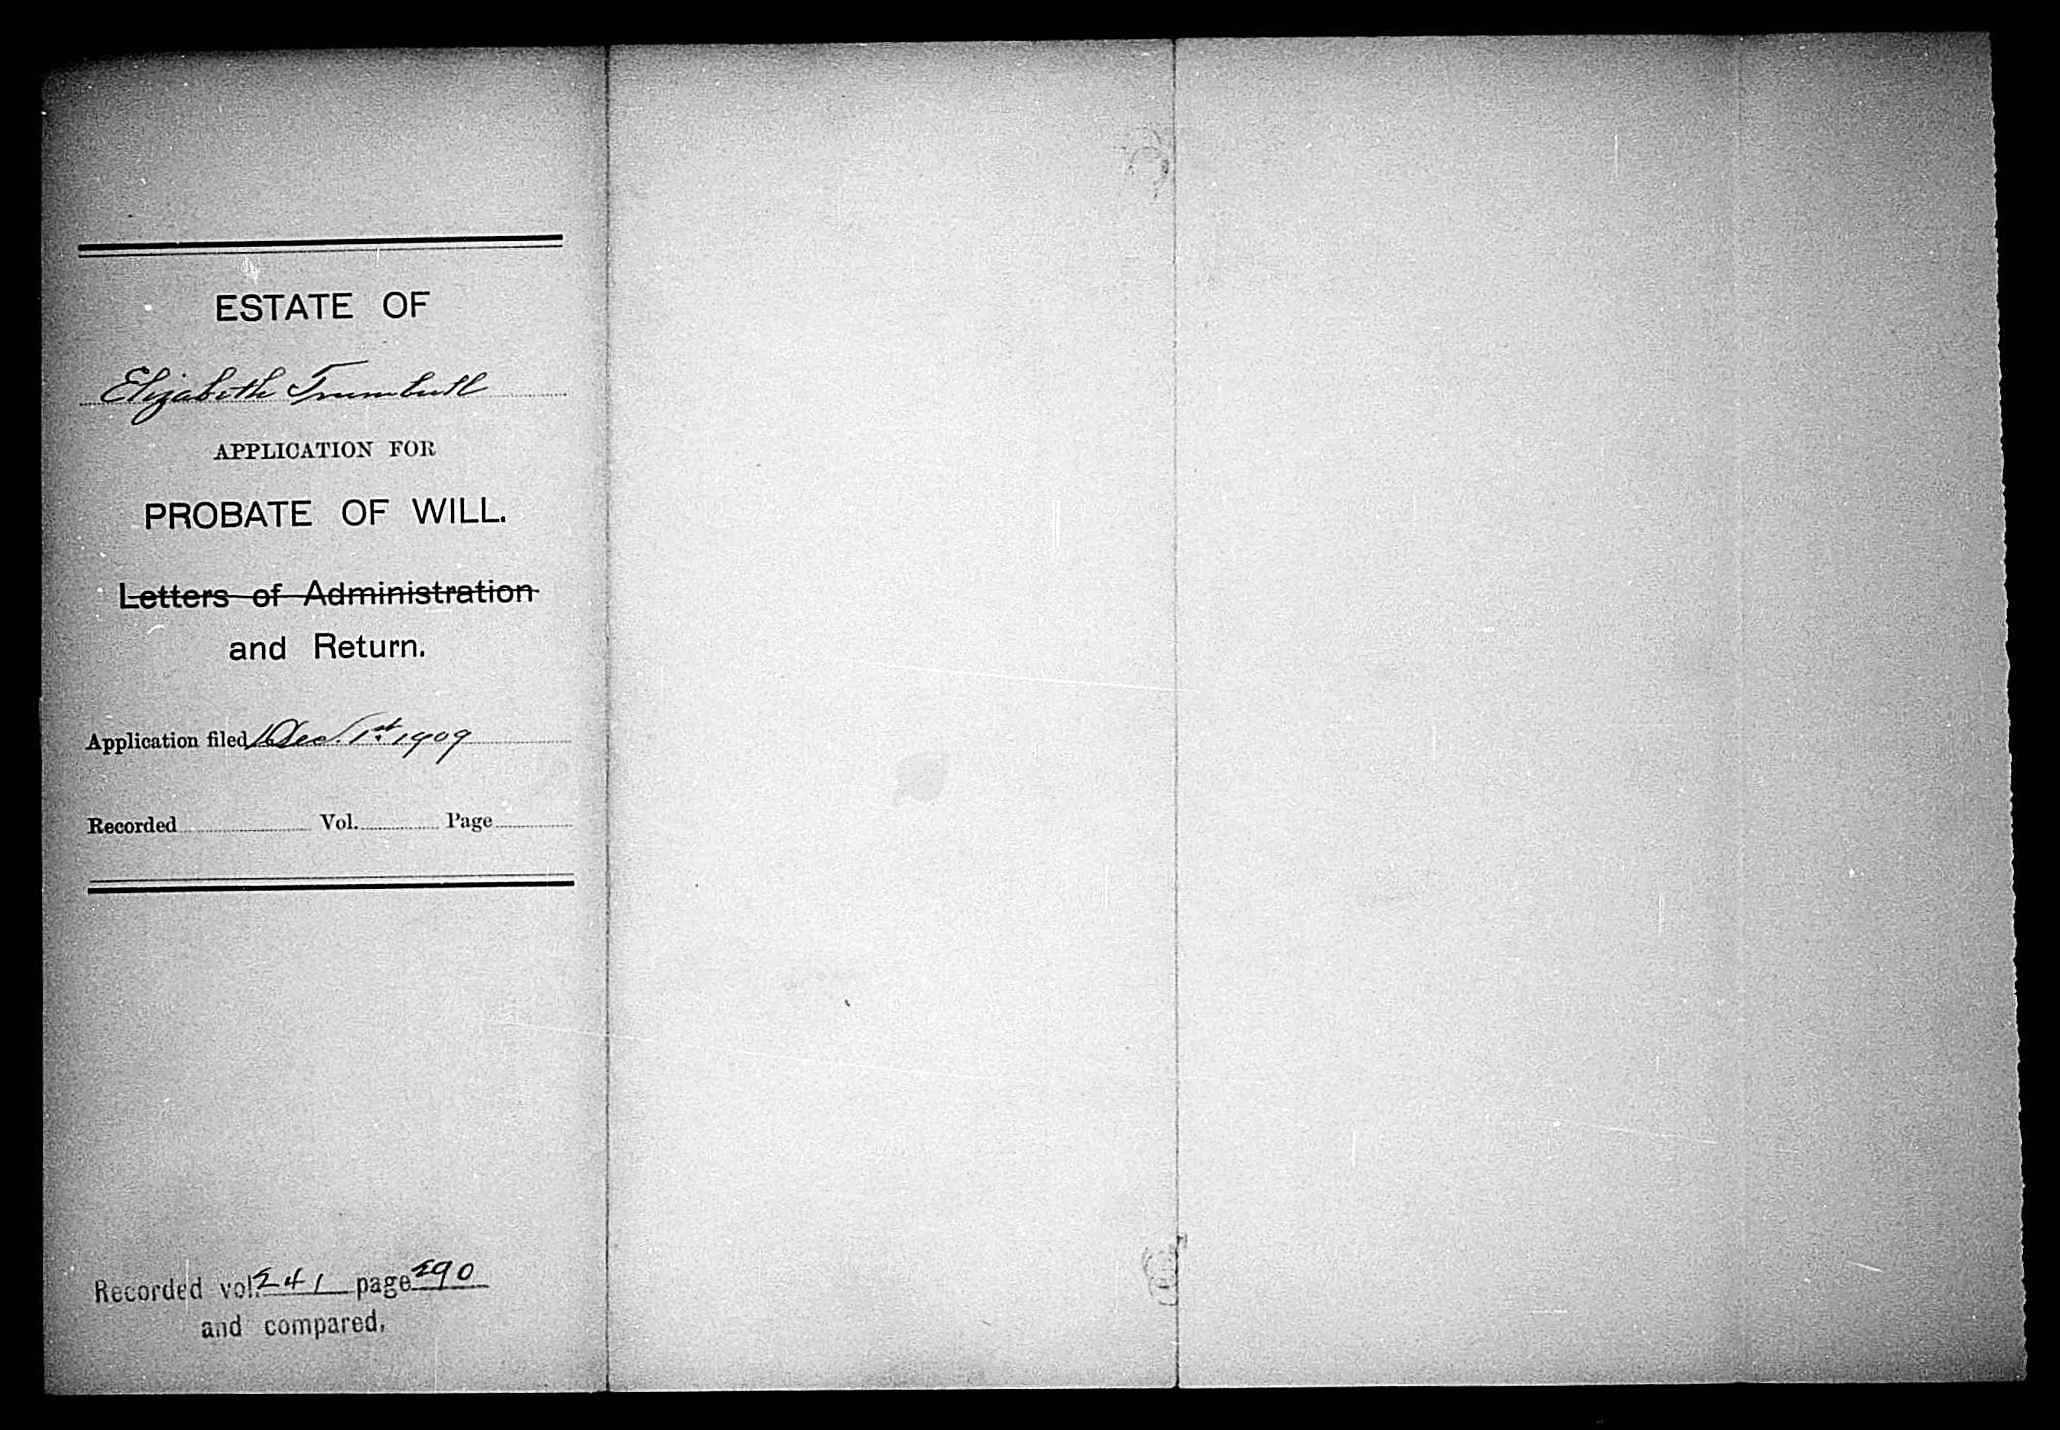 ESTATE OF
Elizabeth Trumbull
APPLICATION FOR
PROBATE OF WILL.
Letters of Administration
and Return.
Application filed Dec. 1st. 1909
Recorded Vol. Page
Recorded vol. 241 page 290
and compared.